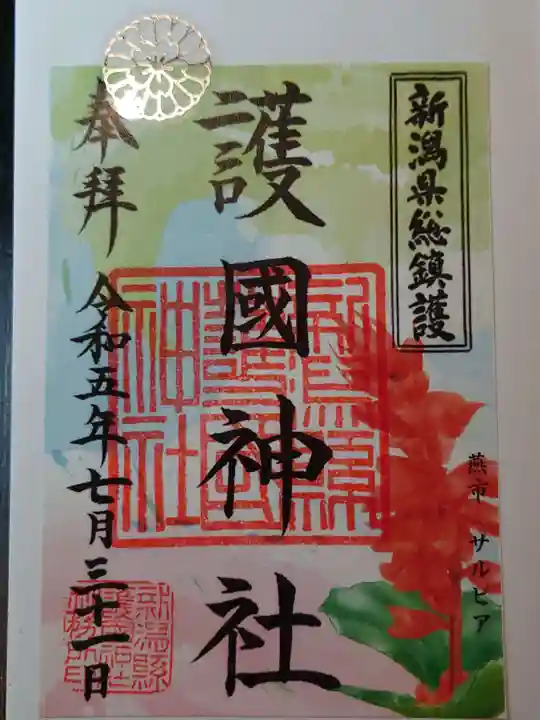 新潟県総鎮護
護國神社
奉拝
令和五年七月三十一日
燕市 サルビア
新潟縣護國神社
新潟縣護國神社社務所印